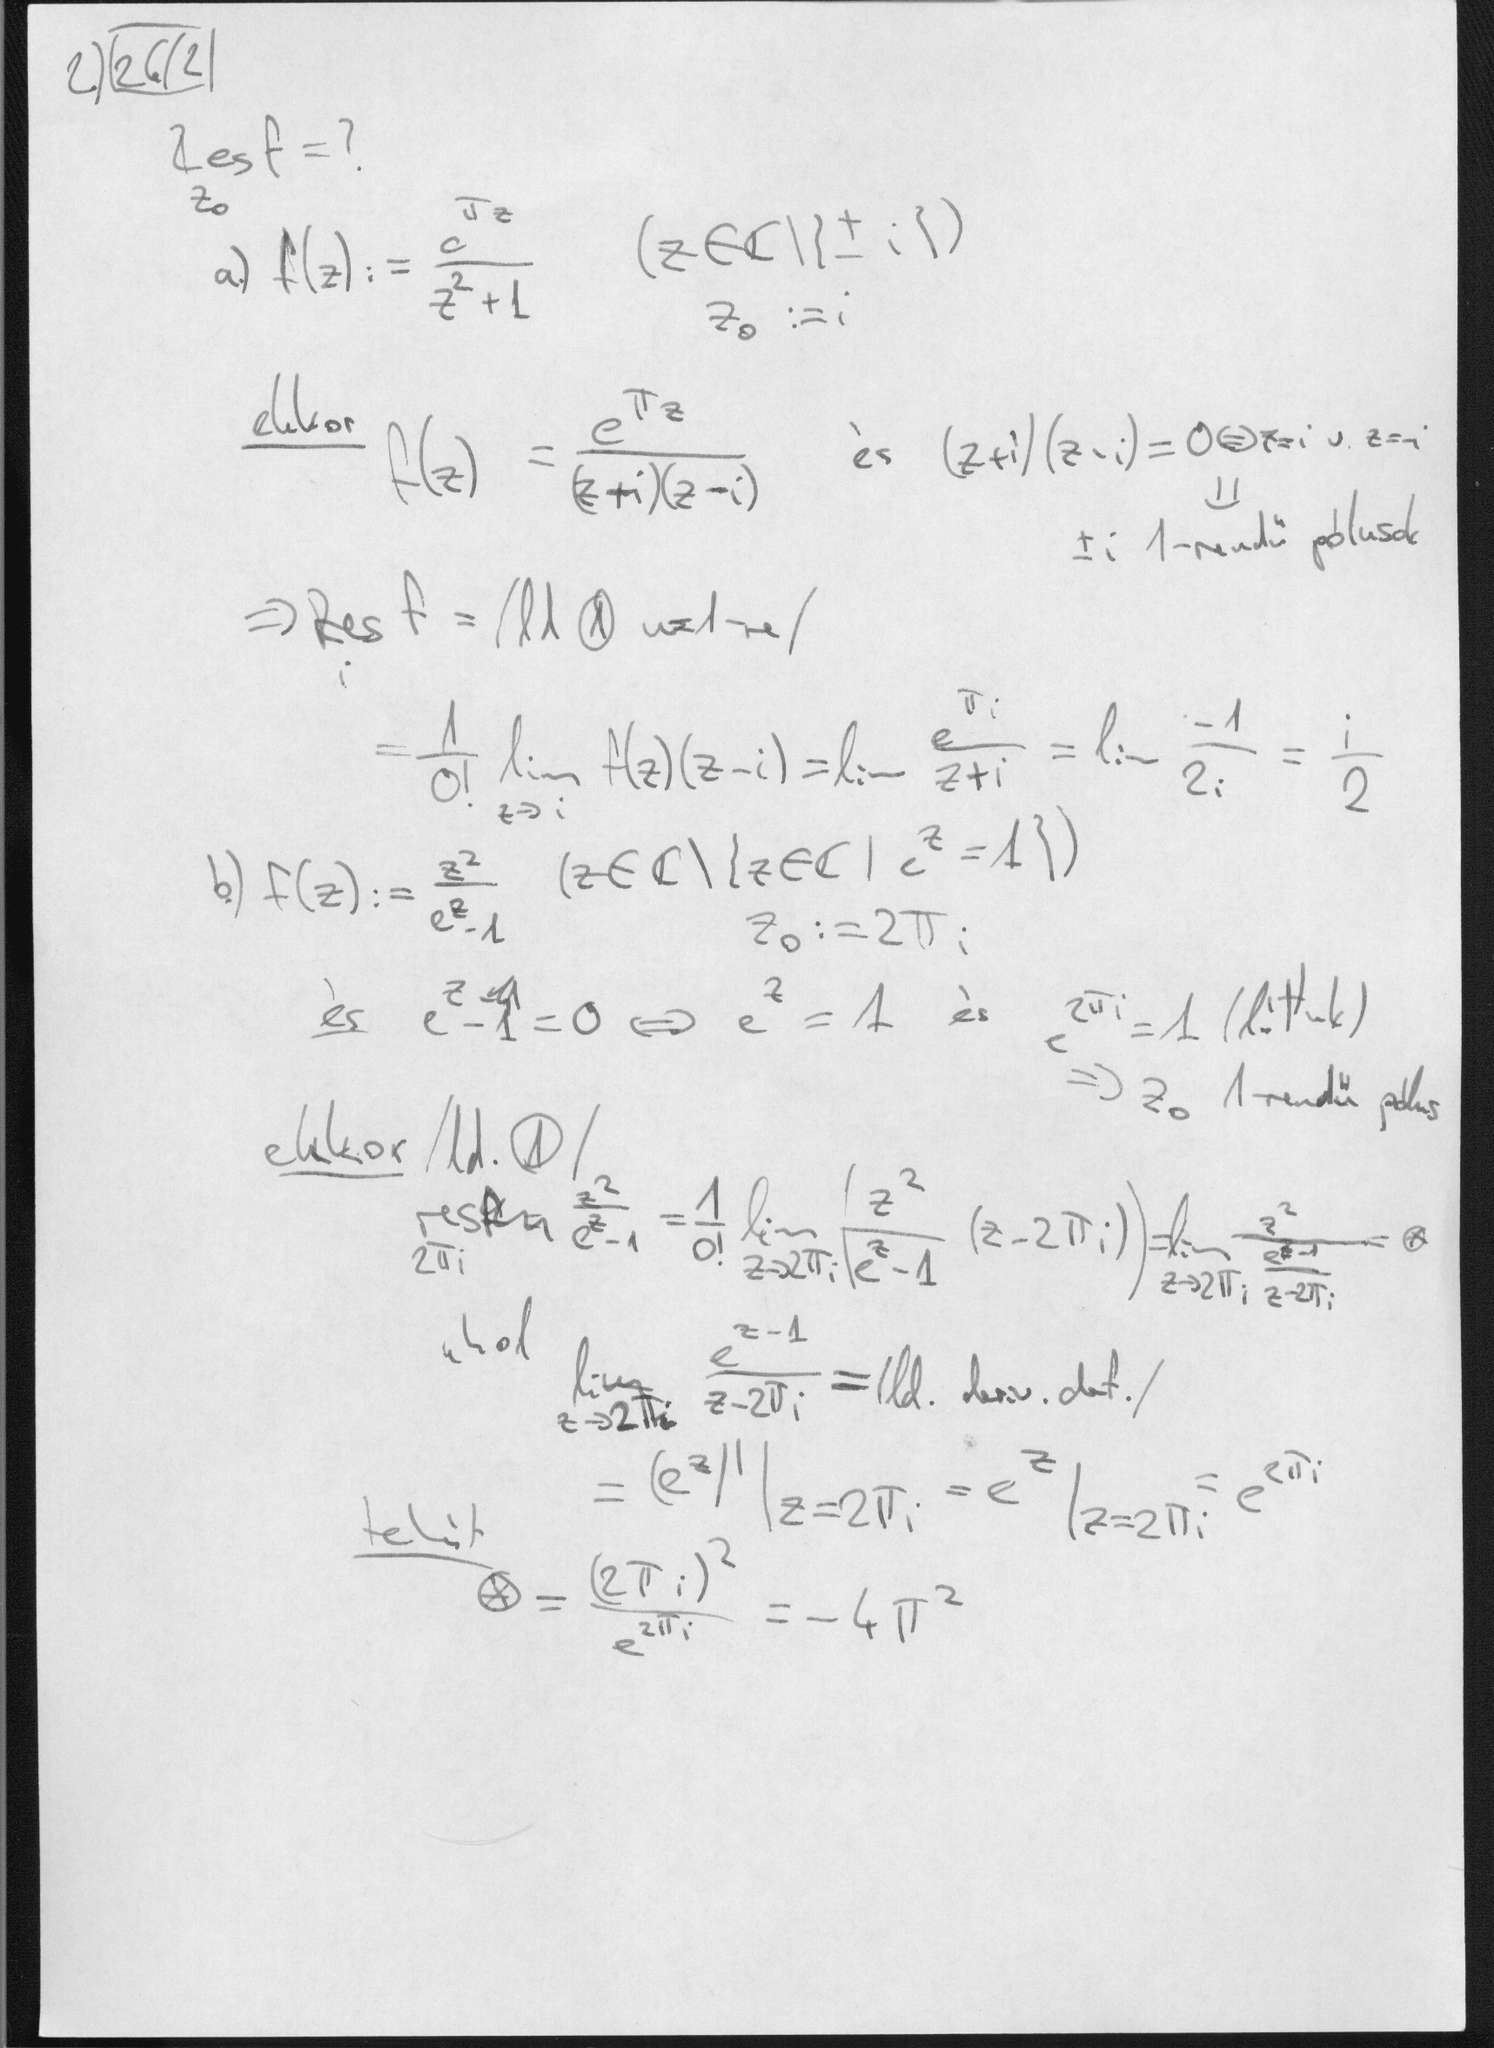 2.) 26/2
Res f = ?
z₀
a.) f(z) := e^{πz}/(z²+1) (z∈ℂ\{±i})
z₀ := i
ekkor f(z) = e^{πz}/((z+i)(z-i)) és (z+i)(z-i) = 0 ⇔ z=i v. z=-i
⇓
±i 1-rendű pólusok
⇒ Res_i f = /ld ① n=1-re/
= 1/0! lim_{z→i} f(z)(z-i) = lim e^{πi}/(z+i) = lim -1/(2i) = i/2
b.) f(z) := z²/(e^z-1) (z∈ℂ\{z∈ℂ | e^z = 1})
z₀ := 2πi
és e^z-1 = 0 ⇔ e^z = 1 és e^{2πi} = 1 (láttuk)
⇒ z₀ 1-rendű pólus
ekkor /ld. ①/
res_{2πi} z²/(e^z-1) = 1/0! lim_{z→2πi} (z²/(e^z-1) (z-2πi)) = lim_{z→2πi} z²/((e^z-1)/(z-2πi)) = ⊛
ahol lim_{z→2πi} (e^{z-1})/(z-2πi) = /ld. deriv. def./
= (e^z)'|_{z=2πi} = e^z|_{z=2πi} = e^{2πi}
tehát
⊛ = (2πi)²/e^{2πi} = -4π²